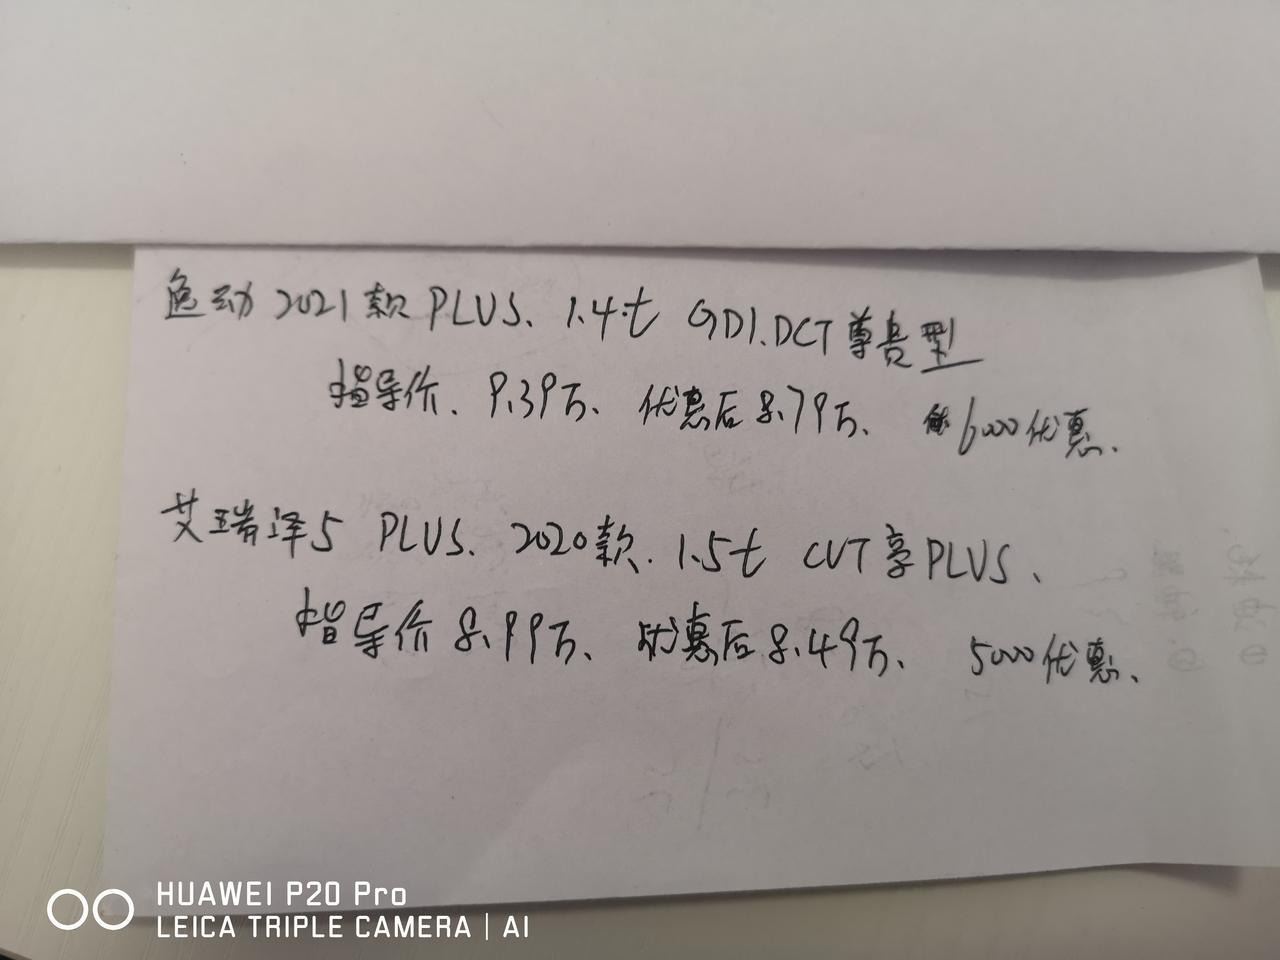 逸动 2021款 PLUS、1.4t GDI.DCT尊贵型
指导价、9.39万、优惠后8.79万、 6000优惠、
艾瑞泽5 PLUS、2020款.1.5t CVT享PLUS、
指导价8.99万、优惠后8.49万、 5000优惠、
HUAWEI P20 Pro
LEICA TRIPLE CAMERA | AI